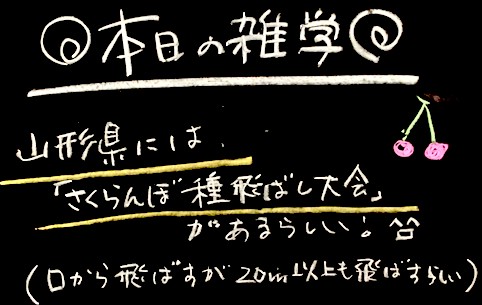 本日の雑学
山形県には
「さくらんぼ種飛ばし大会」
があるらしい!
(口から飛ばすが20m以上も飛ばすらしい)